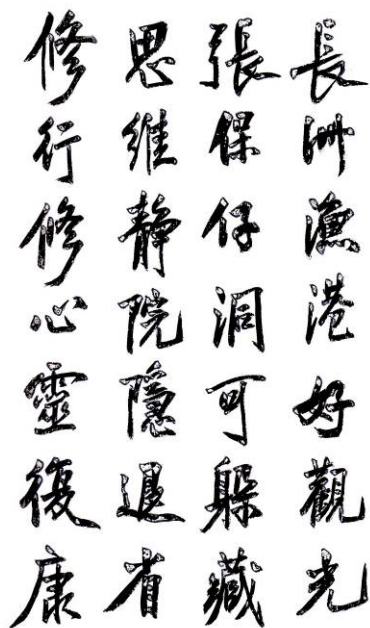 長洲漁港好觀光
張保仔洞可躲藏
思維靜院隱退省
修行修心靈復康